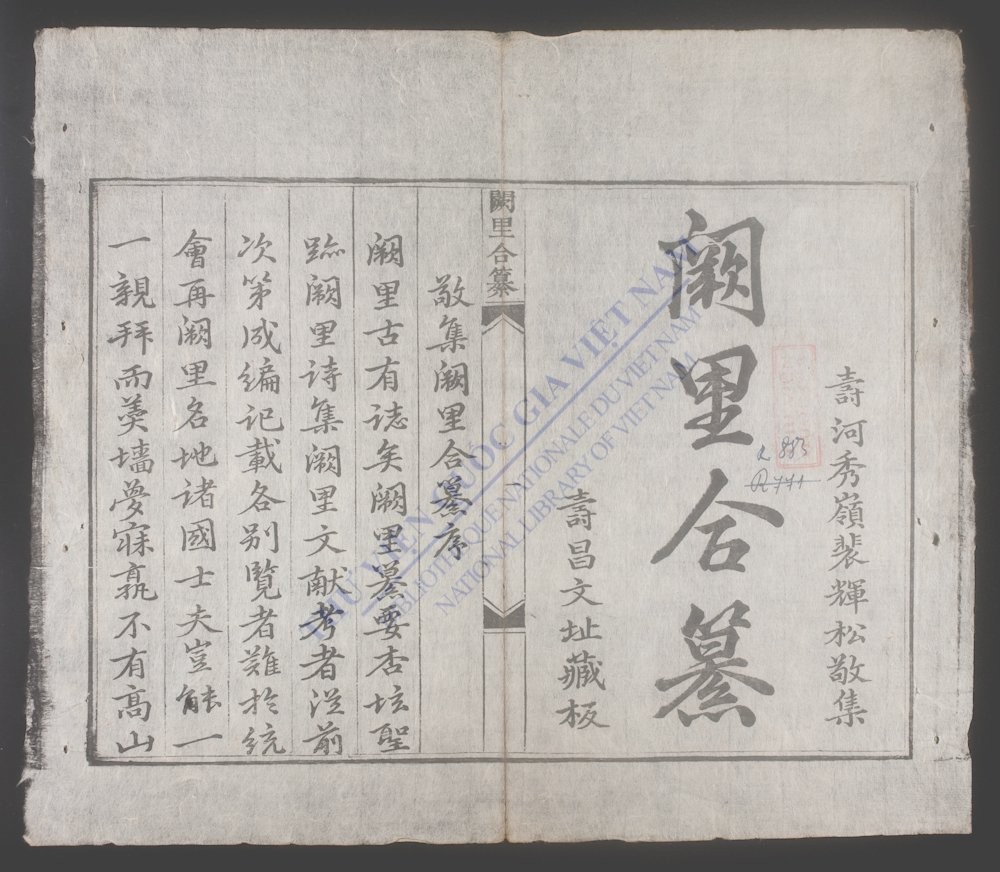 壽河秀嶺裴輝松敬集
闕里合纂
壽昌文址藏板
闕里合纂
一
敬集闕里合纂序
闕里古有誌矣闕里纂要杏坛聖
跡闕里诗集闕里文献考者從前
次第成編记載各别覧者難於統
會再闕里名地諸國士夫豈能一
一親拜而羮墻夢寐孰不有高山
THƯ VIỆN QUỐC GIA VIỆT NAM
BIBLIOTHEQUE NATIONALE DU VIETNAM
NATIONAL LIBRARY OF VIETNAM